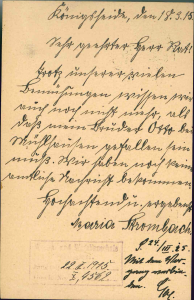 Königsheide, den 18.3.15.
Sehr geehrter Herr Rat!
Trotz unserer vielen
Bemühungen wissen wir
auch noch nicht mehr, als
daß mein Bruder Otto bei
Mülhausen gefallen sein
muß. Wir haben noch keine
amtliche Nachricht bekommen.
Hochachtend u. ergebenst
Maria Strombach.